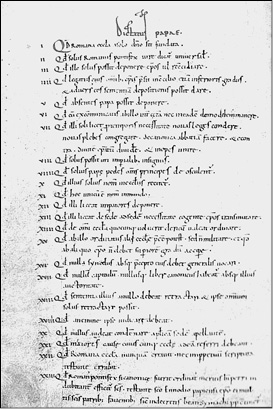 Dictatus papae.
i Qd Romana eccla a solo dno sit fundata.
ii Qd solus Romanus pontifex iure dicat universal.
iii Qd ille solus possit deponere epos vl reconciliare.
iiii Qd legatus eius omib; epis presit in concilio etia inferioris gradus
& adversus eos sententia depositionis possit dare.
v Qd absentes papa possit deponere.
vi Qd cu excomunicatis ab illo int cetera nec in eade domo debem manere.
vii Qd illi soli licet p temporis necessitate novas leges condere,
novas plebes congregare, de canonica abbatia facere, & econ
tra, divite epatu dividere, & inopes unire.
viii Qd solus possit uti imperialib; insigniis.
viiii Qd solius pape pedes oms principes deosculent.
x Qd illius solius nom in ecclis recitet.
xi Qd hoc unicu e nom in mundo.
xii Qd illi liceat imperatores deponere.
xiii Qd illi liceat de sede ad sede necessitate cogente epos transmutare.
xiiii Qd de omi eccla quocunq; voluerit clericu valeat ordinare.
xv Qd ab illo ordinatus alii eccle pee potest, sed n militare; et qd
ab aliquo epo n debet superiore gradu accipe.
xvi Qd nulla synodus absq; pcepto ei debet generalis vocari.
xvii Qd nullu capitulu nullusq; liber canonicus habeat absq; illius
auctoritate.
xviii Qd sententia illius a nullo debeat retractari & ipse omium
solus retractare possit.
xviiii Qd a nemine ipse iudicari debeat.
xx Qd nullus audeat condemnare aplica sede apellante.
xxi Qd maiores cause cuiuscunq; eccle ad ea referri debeant.
xxii Qd Romana eccla nunqua erravit nec inppetuu scriptura
testante errabit.
xxiii Qd Romanus pontifex si canonice fuerit ordinatus meritis b. petri in
dubitanter effici scs. testante sco Ennodio papiensi epo ei multis
scis patrib; faventib; sic in decretis